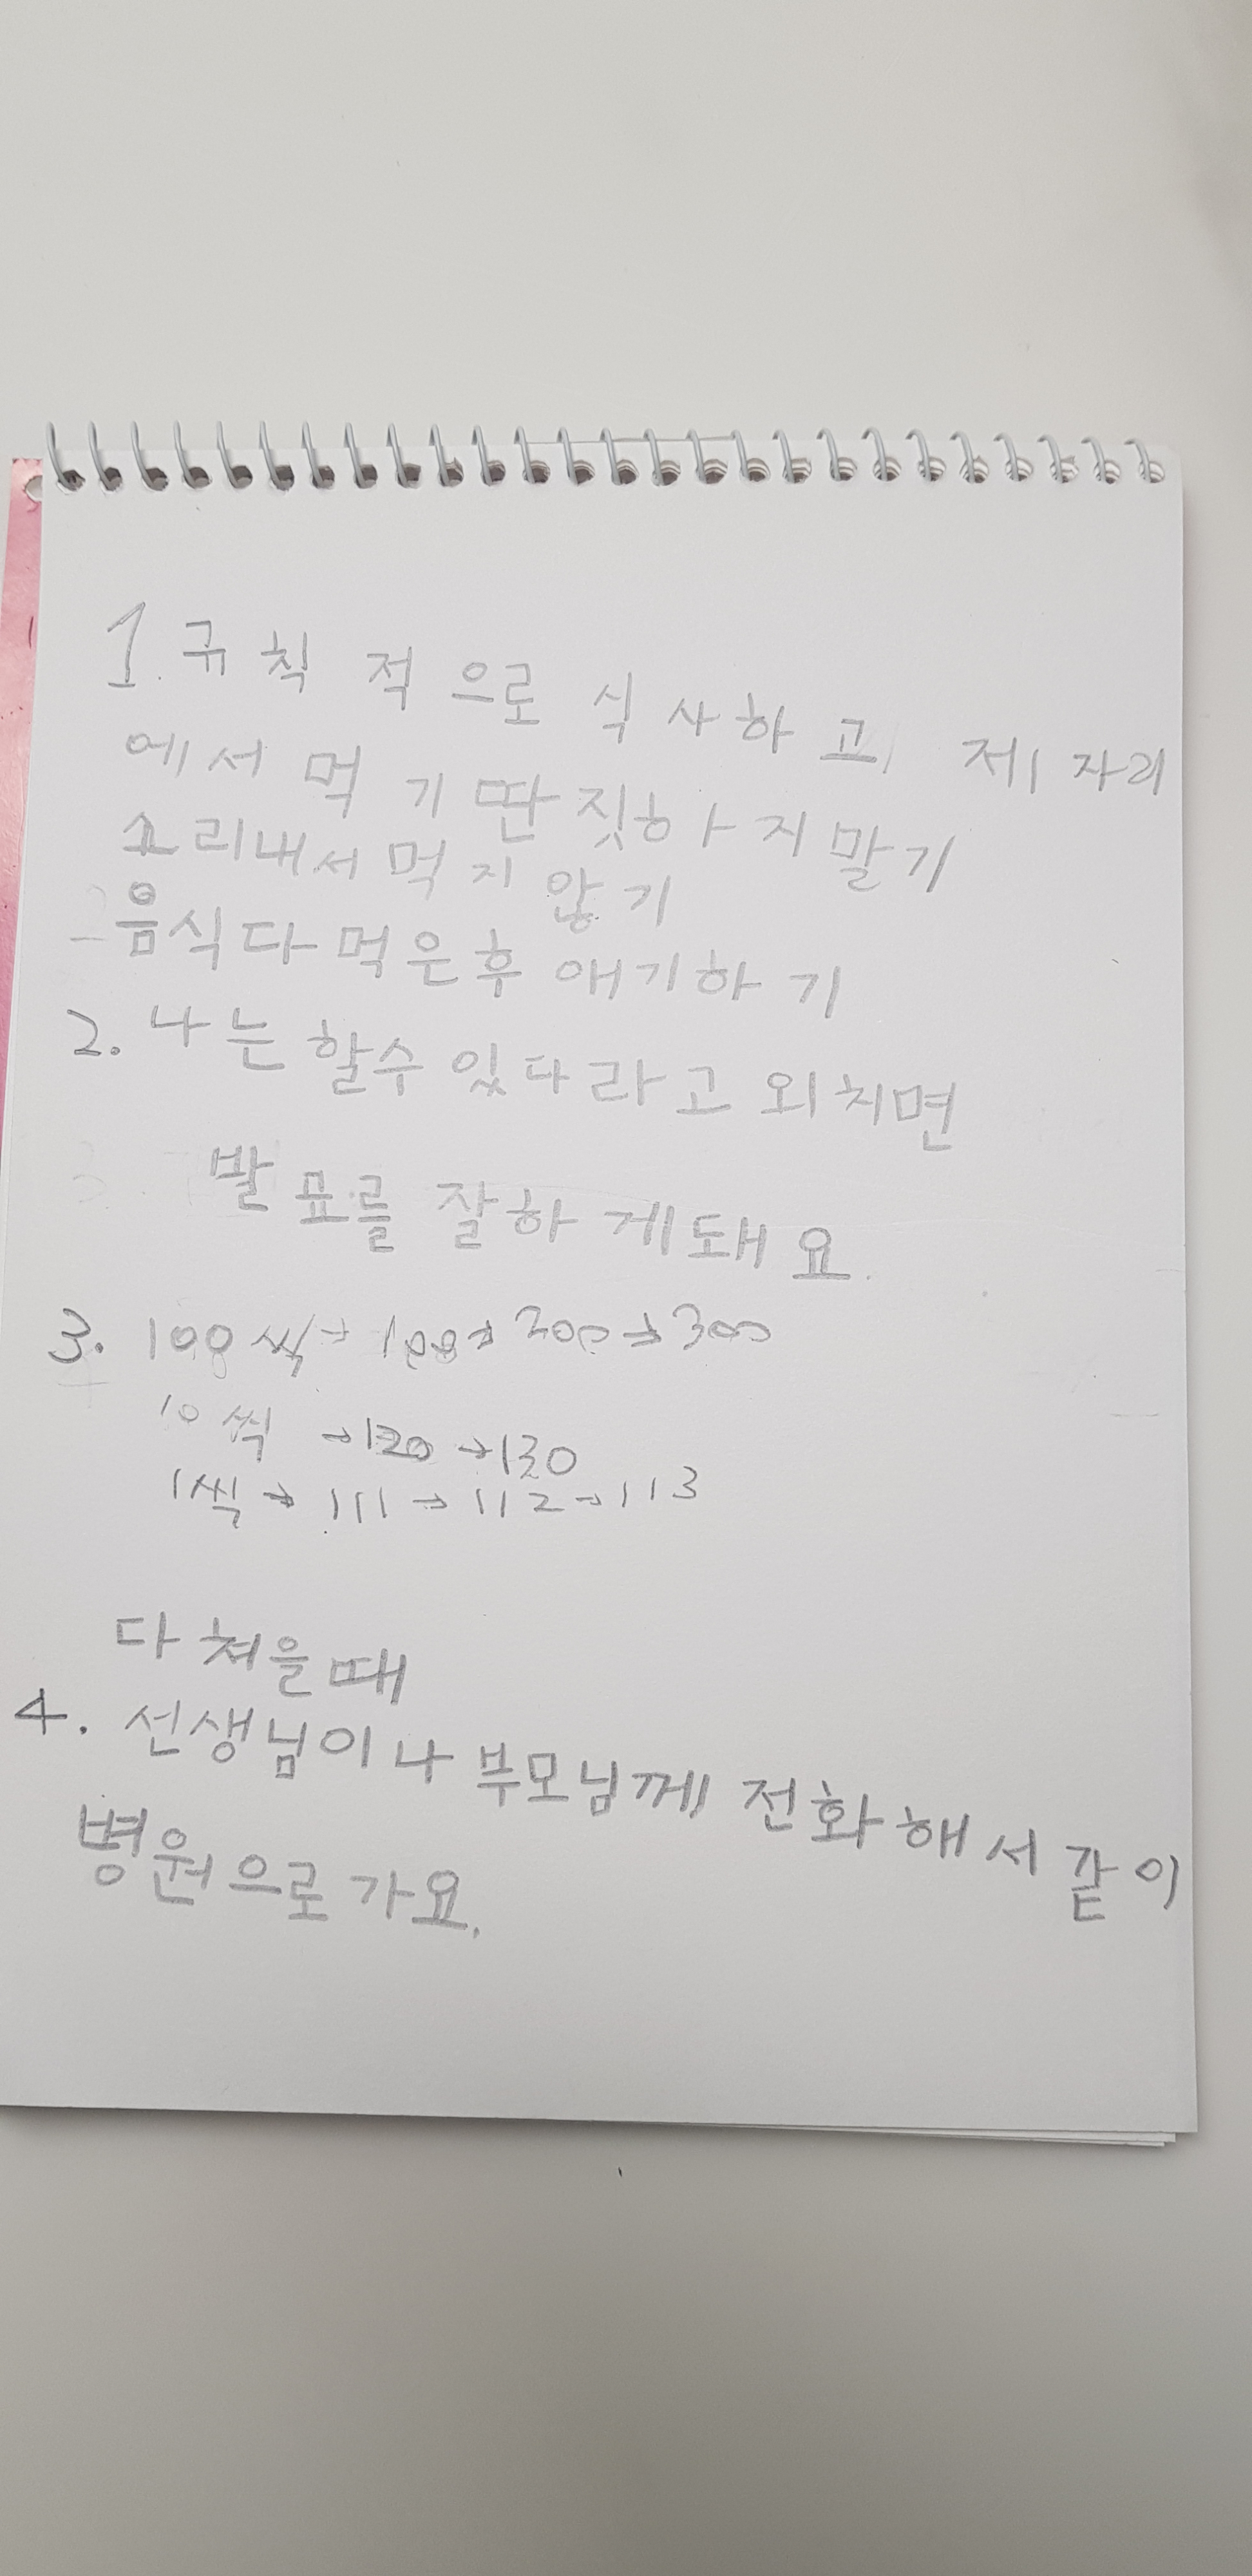 1. 규칙적으로 식사하고, 제자리
에서 먹기 딴짓하지 말기
소리내서 먹지 않기
음식다 먹은후 애기하기
2. 나는 할수 있다라고 외치면
발표를 잘하게돼요.
3. 100씩→100→200→300
10씩 →120→130
1씩→111→112→113
다쳐을때
4. 선생님이나 부모님께 전화해서 같이
병원으로가요.